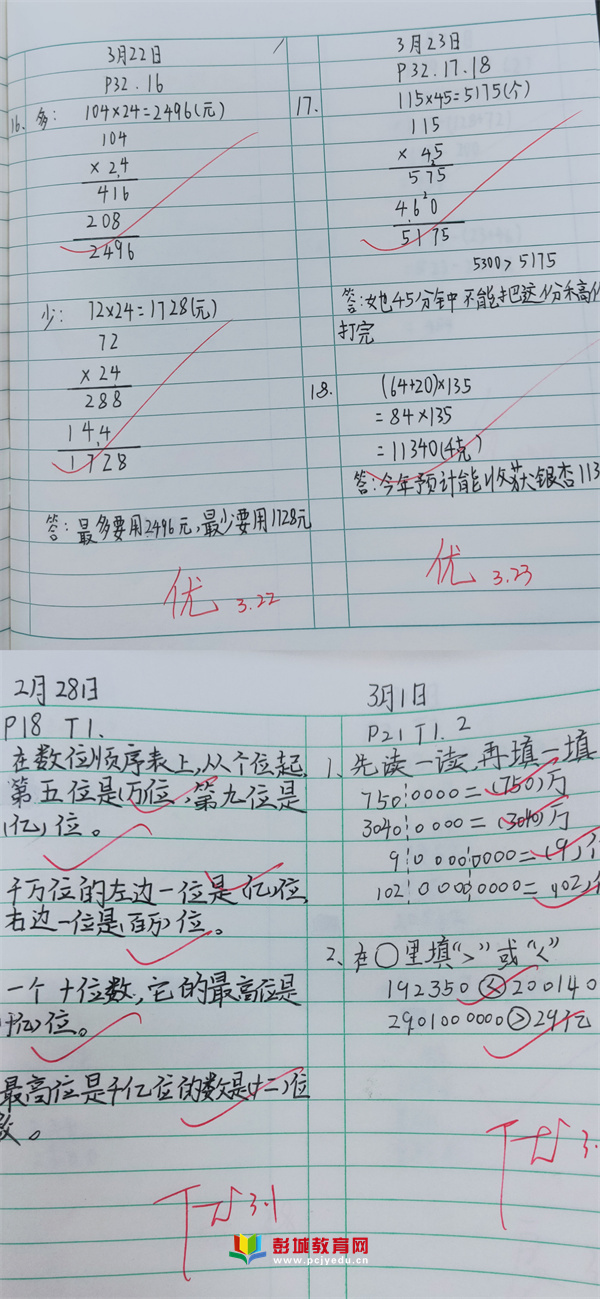 3月22日
P32.16
16、多: 104×24=2496(元)
104
× 24
416
208
2496
少: 72×24=1728(元)
72
× 24
288
144
1728
答:最多要用2496元,最少要用1728元
优 3.22
3月23日
P32.17.18
17. 115×45=5175(个)
115
× 45
575
460
5175
5300>5175
答:她45分钟中不能把这份稿
打完
18. (64+20)×135
=84×135
=11340(千克)
答:今年预计能收获大银杏113
优 3.23
2月28日
P18 T1.
在数位顺序表上,从个位起,
第五位是(万位),第九位是
(亿)位。
千万位的左边一位是(亿)位,
右边一位是(百万)位。
一个十位数,它的最高位是
亿)位。
最高位是千亿位的数是(十二)位
数。
3.1
3月1日
P21 T1.2
1、先读一读,再填一填
750 0000=(750)万
3040 0000=(3040)万
9 0000 0000=(9)
102 0000 0000=102)
2、在○里填“>”或“<”
192350<200140
2901000000>29亿
3.
彭城教育网
www.pcjyedu.cn